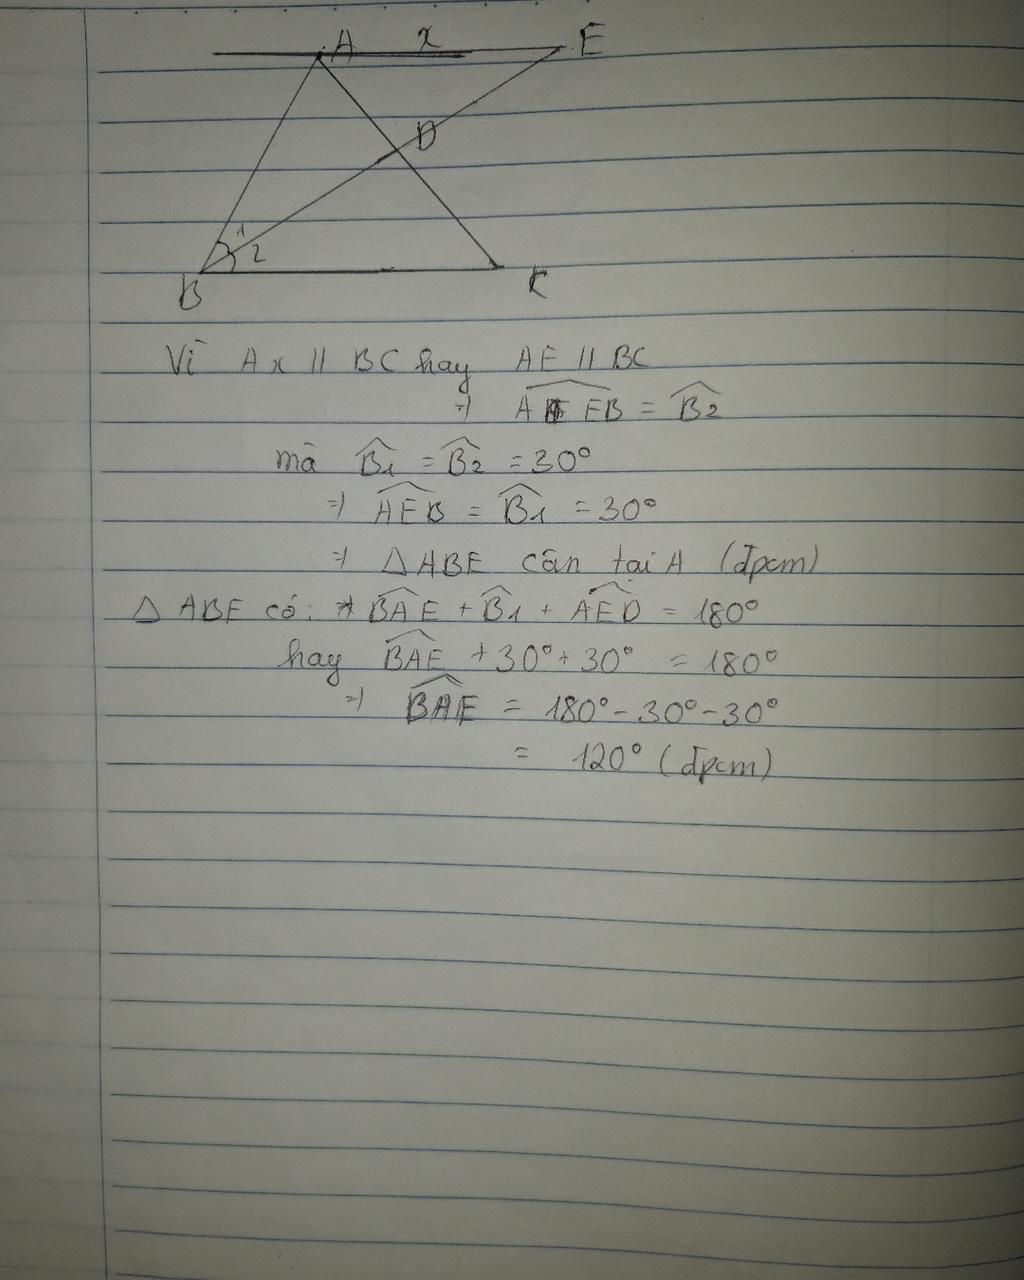 A x E
D
1
2
B C
Vì Ax // BC hay AE // BC
=> \widehat{AEB} = \widehat{B2}
mà \widehat{B1} = \widehat{B2} = 30°
=> \widehat{AEB} = \widehat{B1} = 30°
=> △ABE cân tại A (đpcm)
△ABE có: \widehat{BAE} + \widehat{B1} + \widehat{AED} = 180°
hay \widehat{BAE} + 30° + 30° = 180°
=> \widehat{BAE} = 180° - 30° - 30°
= 120° (đpcm)